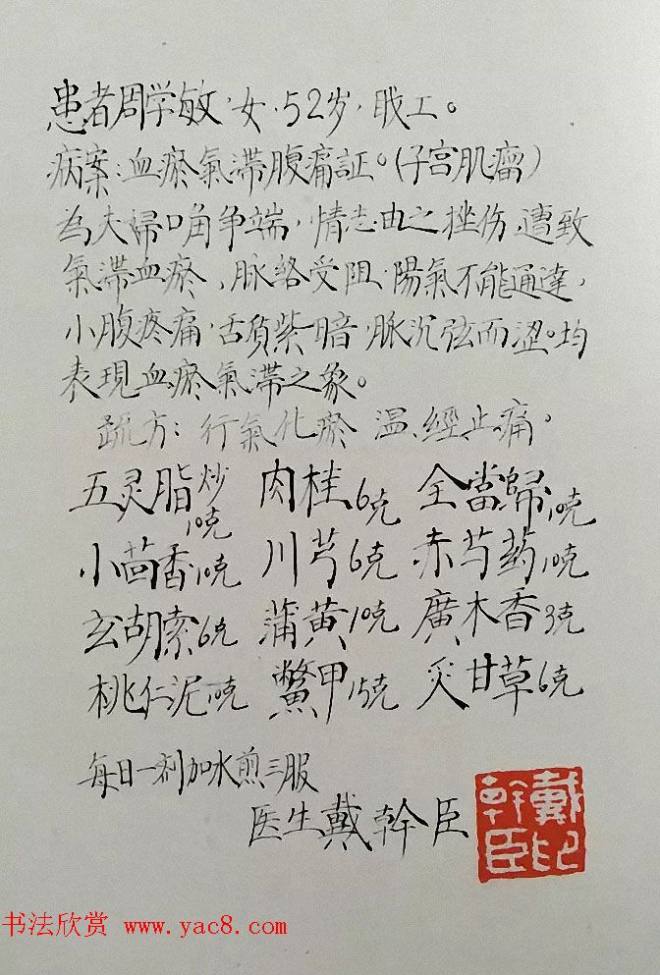 患者周学敏，女，52岁，职工。
病案：血瘀氣滞腹痛証。（子宫肌瘤）
為夫婦口角争端，情志由之挫伤，遭致
氣滞血瘀，脉络受阻，陽氣不能通達，
小腹疼痛，舌質紫暗，脉沉弦而涩。均
表現血瘀氣滞之象。
疏方：行氣化瘀 温經止痛，
五灵脂炒10克 肉桂6克 全當歸10克
小茴香10克 川芎6克 赤芍药10克
玄胡索6克 蒲黄10克 廣木香3克
桃仁泥10克 鱉甲15克 炙甘草6克
每日一剂加水煎三服
医生戴幹臣
戴印幹臣
书法欣赏 www.yac8.com